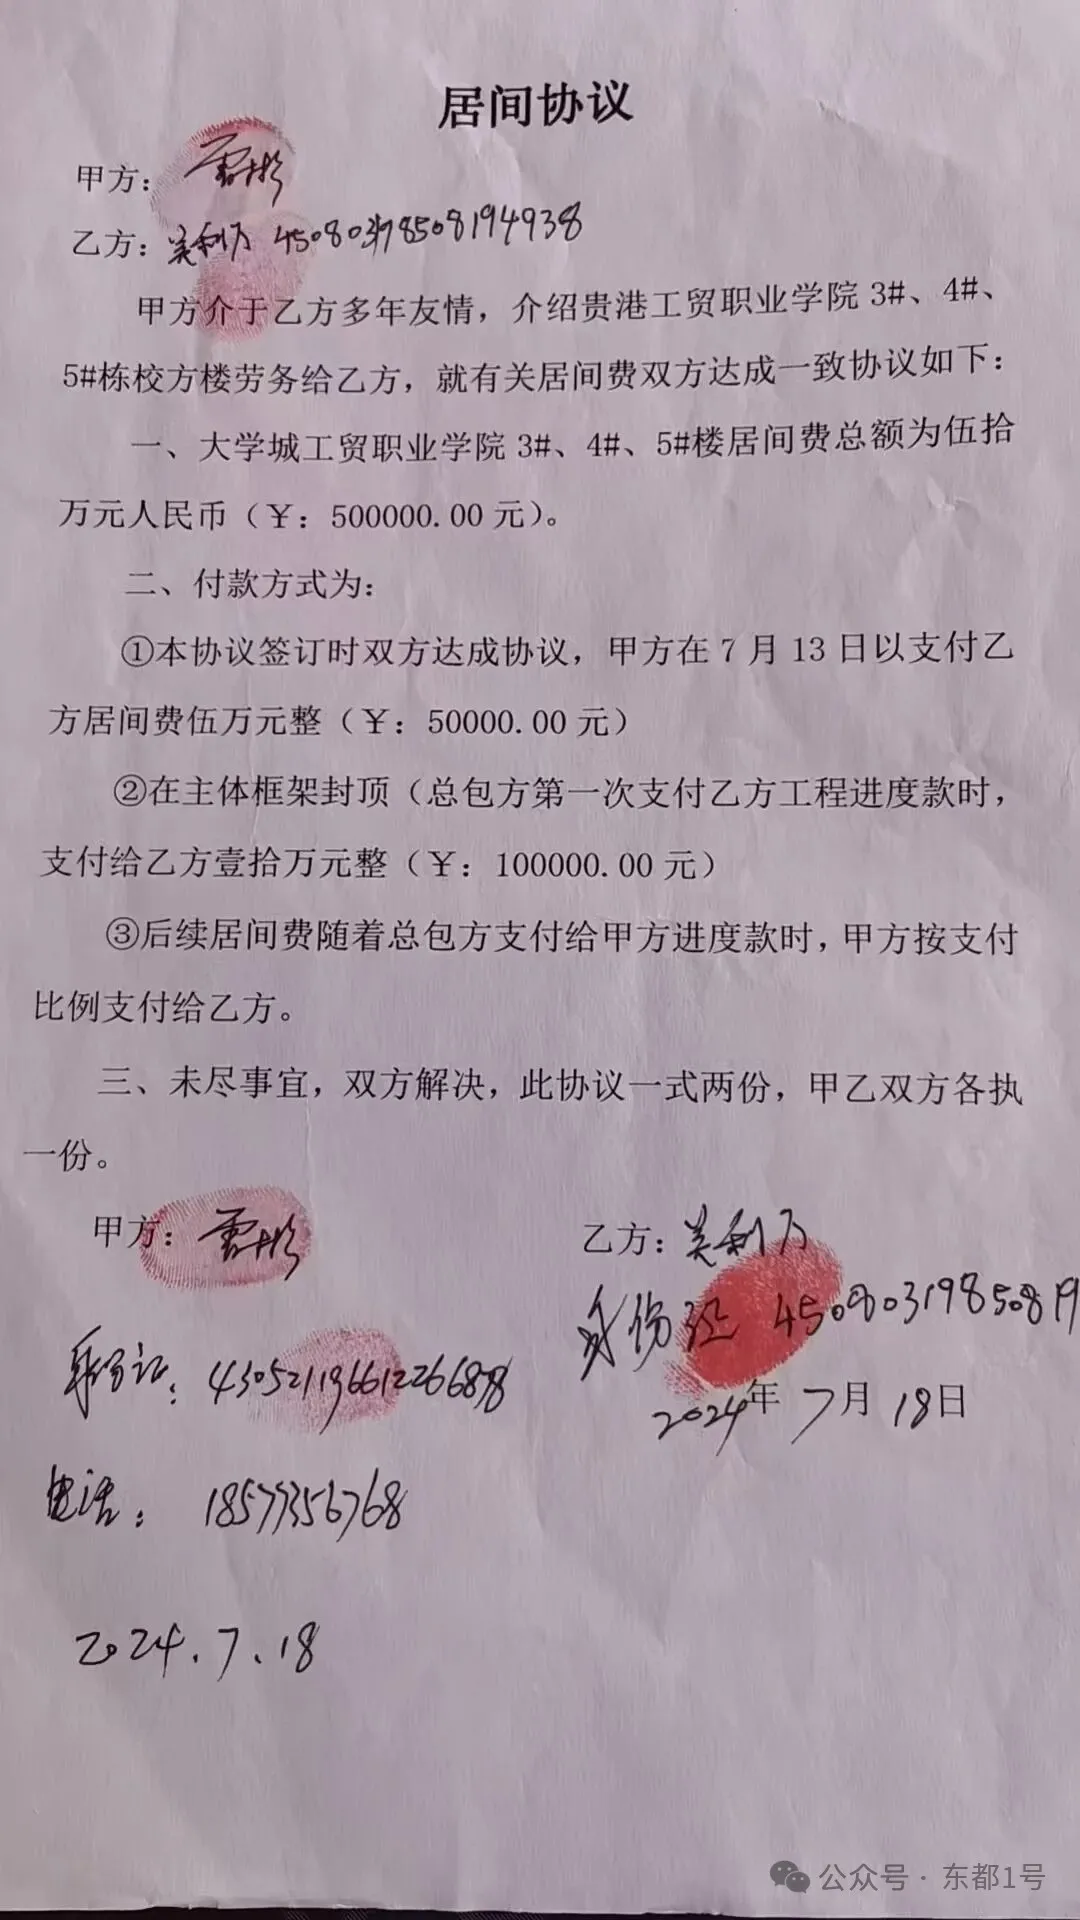 居间协议
甲方：
乙方： 利
甲方介于乙方多年友情，介绍贵港工贸职业学院 3#、4#、
5#栋校方楼劳务给乙方，就有关居间费双方达成一致协议如下：
一、大学城工贸职业学院 3#、4#、5#楼居间费总额为伍拾
万元人民币（￥：500000.00 元）。
二、付款方式为：
①本协议签订时双方达成协议，甲方在 7 月 13 日以支付乙
方居间费伍万元整（￥：50000.00 元）
②在主体框架封顶（总包方第一次支付乙方工程进度款时，
支付给乙方壹拾万元整（￥：100000.00 元）
③后续居间费随着总包方支付给甲方进度款时，甲方按支付
比例支付给乙方。
三、未尽事宜，双方解决，此协议一式两份，甲乙双方各执
一份。
甲方：
乙方： 利
身份证：
身份证
2024年 7月 18日
电话： 18577356768
2024.7.18
公众号·东都1号